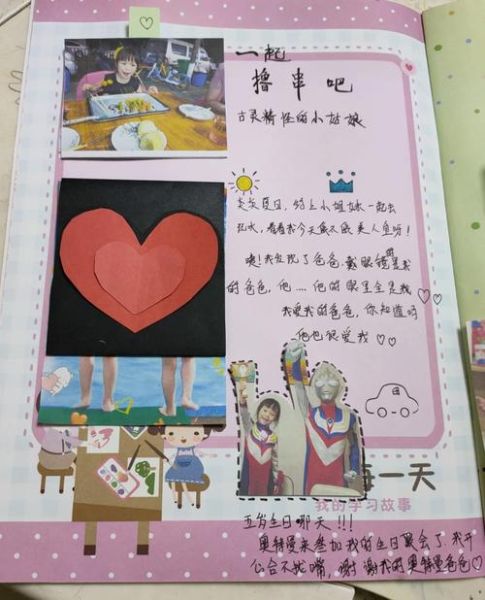 一起
撸串吧
古灵精怪的小姑娘
炎炎夏日,约上小姐妹一起去
玩水,看看我今天像不像美人鱼呀!
噢!我发现了爸爸戴眼镜是我
的爸爸,他....他的眼里全是我
我爱我的爸爸,你知道吗
他也很爱我
每一天
我的学习故事
五岁生日哪天!!!
奥特曼来参加我的生日宴会了我开
心合不拢嘴,谢谢我的奥特曼爸爸